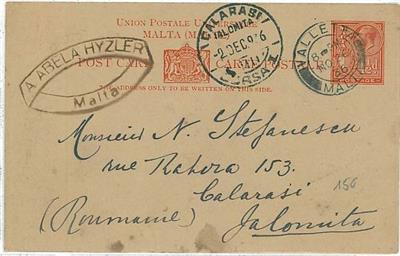 UNION POSTALE UNIVERSELLE
MALTA
POST CARD
THE ADDRESS ONLY TO BE WRITTEN ON THIS SIDE
A. ABELA HYZLER
Malta
CALARASI
JALOMITA
-2 DEC. 926
VALLETTA
MALTA
Monsieur N. Stefanescu
rue Rahova 153.
Calarasi
(Roumanie) Jalomita
156